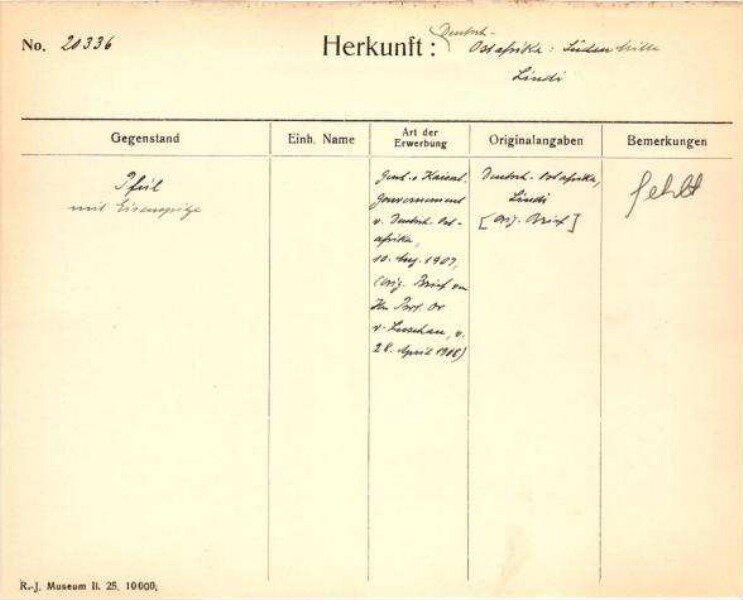 No. 20336
Herkunft: Deutsch-
Ostafrika: Süden
Lindi
Gegenstand
Einh. Name
Art der
Erwerbung
Originalangaben
Bemerkungen
Pfeil
mit Eisenspitze
Kaiserl.
Gouvernement
v. Deutsch. Ost-
afrika,
10. Aug. 1907,
(orig. Brief von
Hn Prof. Dr
v. Luschan, v.
28. April 1908)
Deutsch. Ostafrika,
Lindi
[Orig. Brief]
fehlt
R.-J. Museum II. 25. 10000.